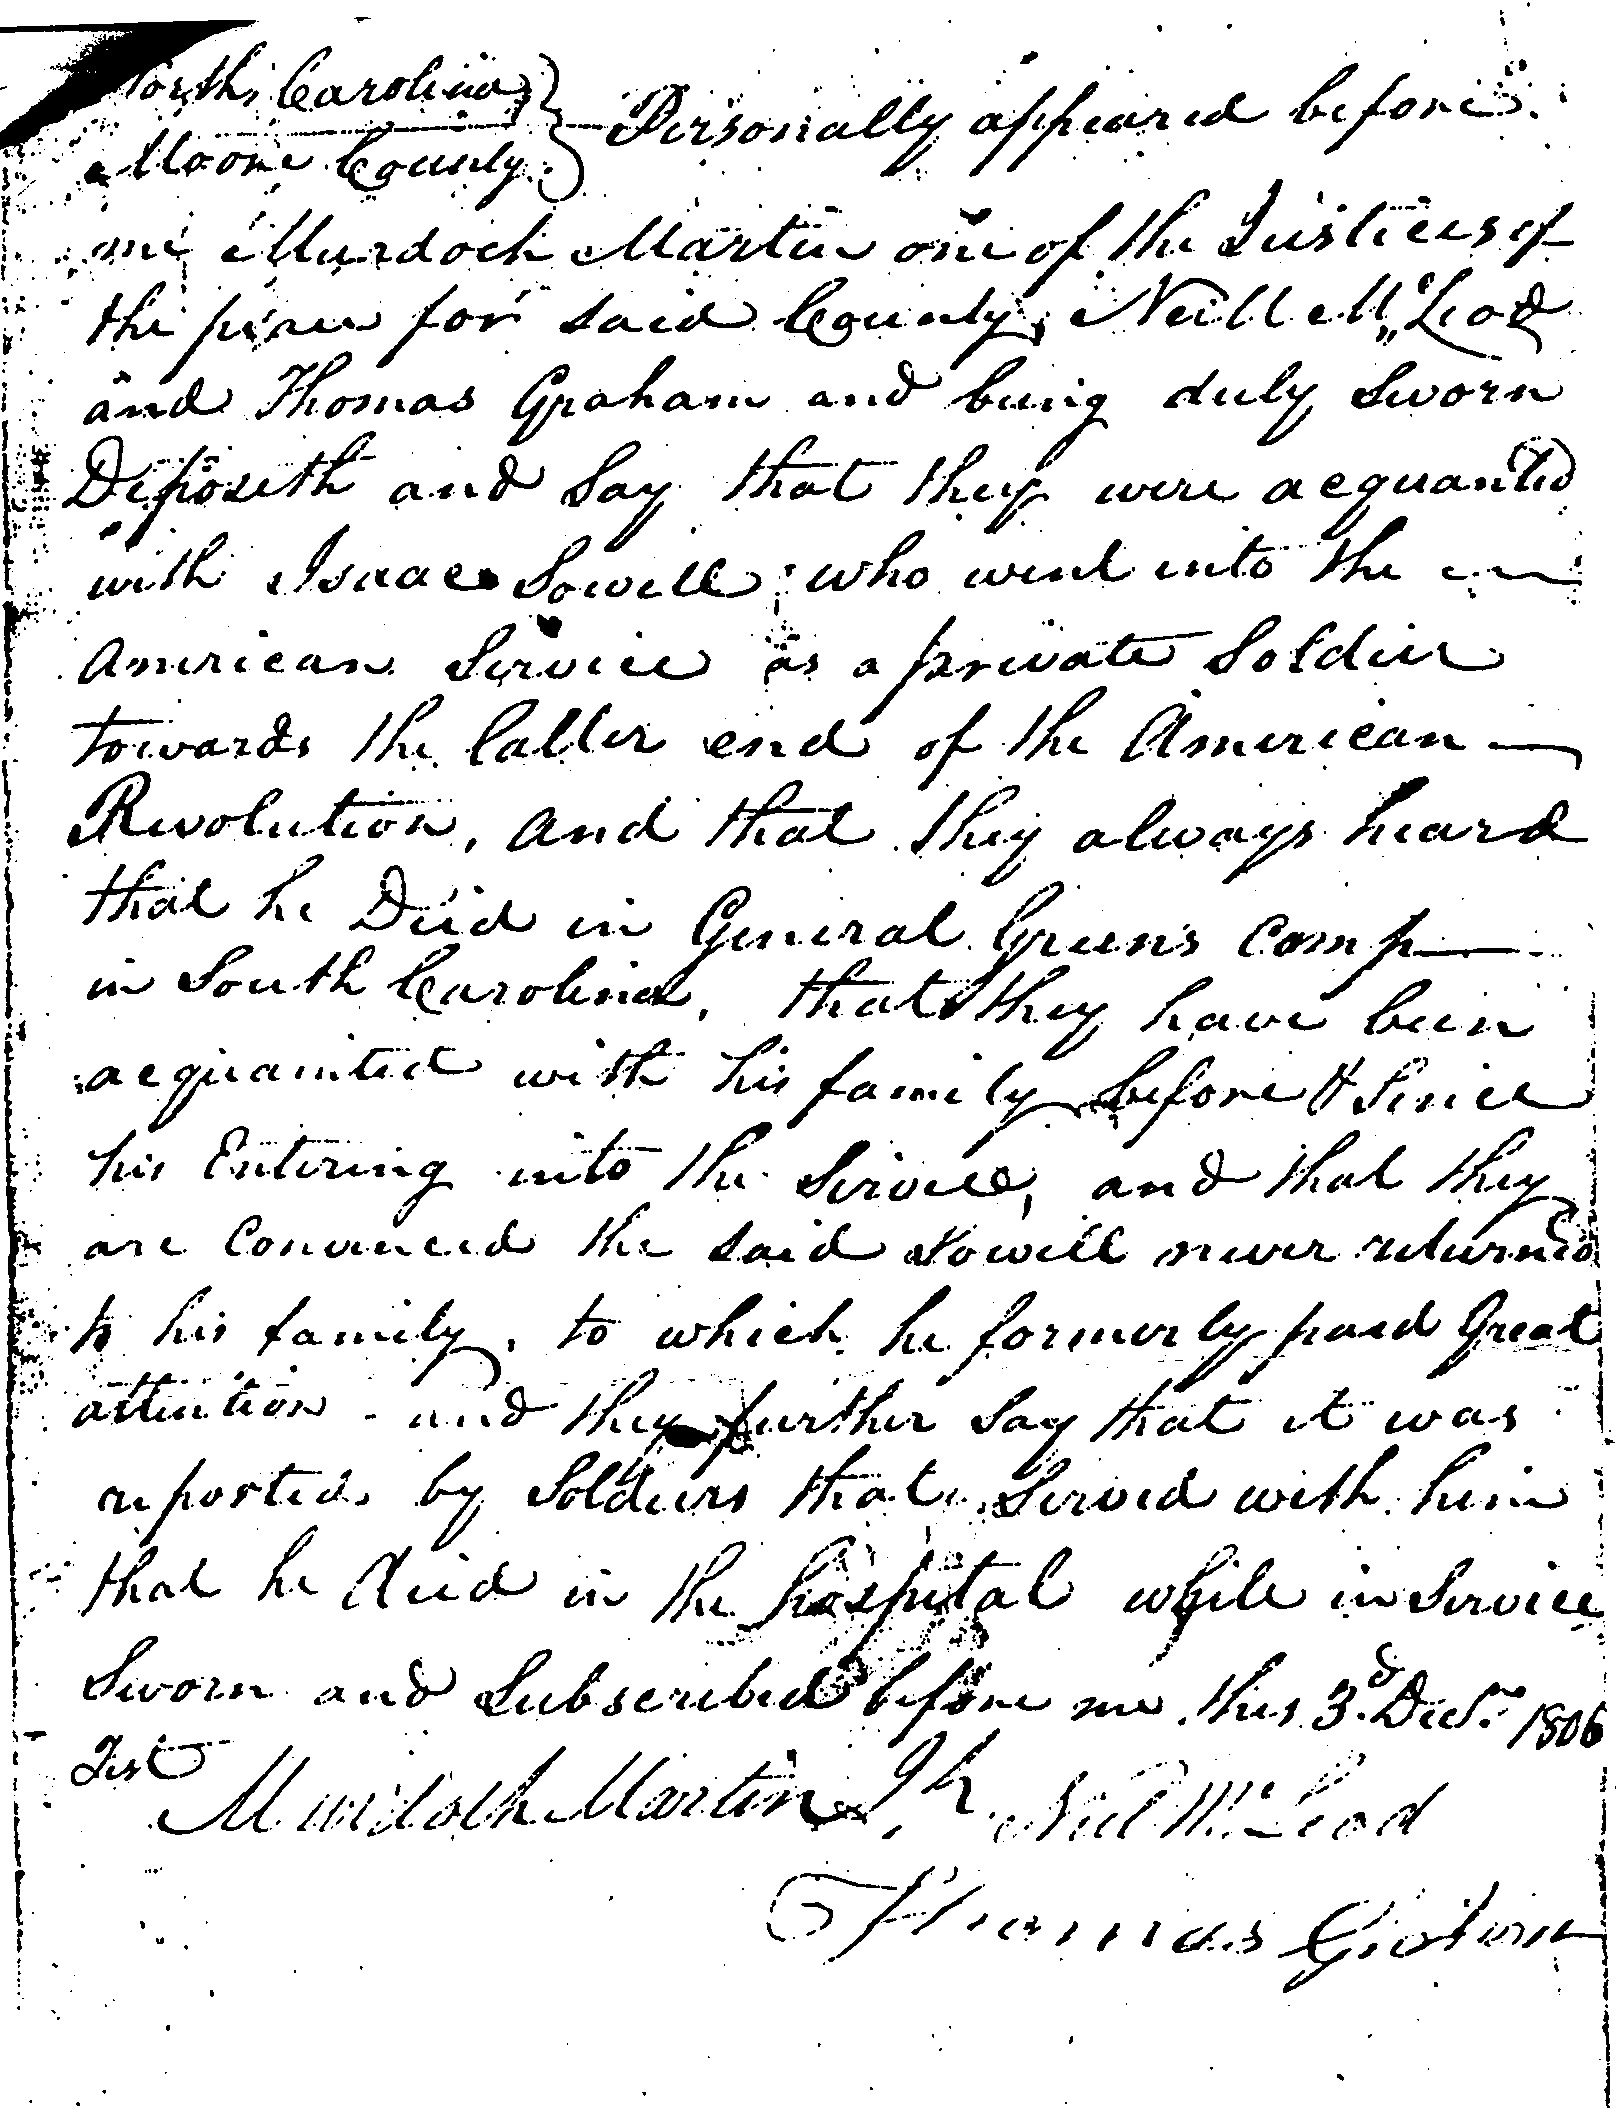 North Carolina
Moore County } Personally appeared before
me Murdoch Martin one of the Justices of
the peace for said County, Neill McLeod
and Thomas Graham and being duly sworn
Deposeth and Say that they were acquanted
with Isaac Sowell who went into the
American Service as a private Soldier
towards the latter end of the American
Revolution, and that they always heard
that he Died in General Greens camp
in South Carolina, that they have been
acquainted with his family before & Since
his Entering into the Service, and that they
are Convinced the said Sowell never returned
to his family, to which he formerly paid Great
attention - and they further Say that it was
reported by Soldiers that Served with him
that he died in the hospital while in Service
Sworn and Subscribed before me this 3d. Decr. 1806
Test
Murdoch Martin Neil McLeod
Thomas Graham